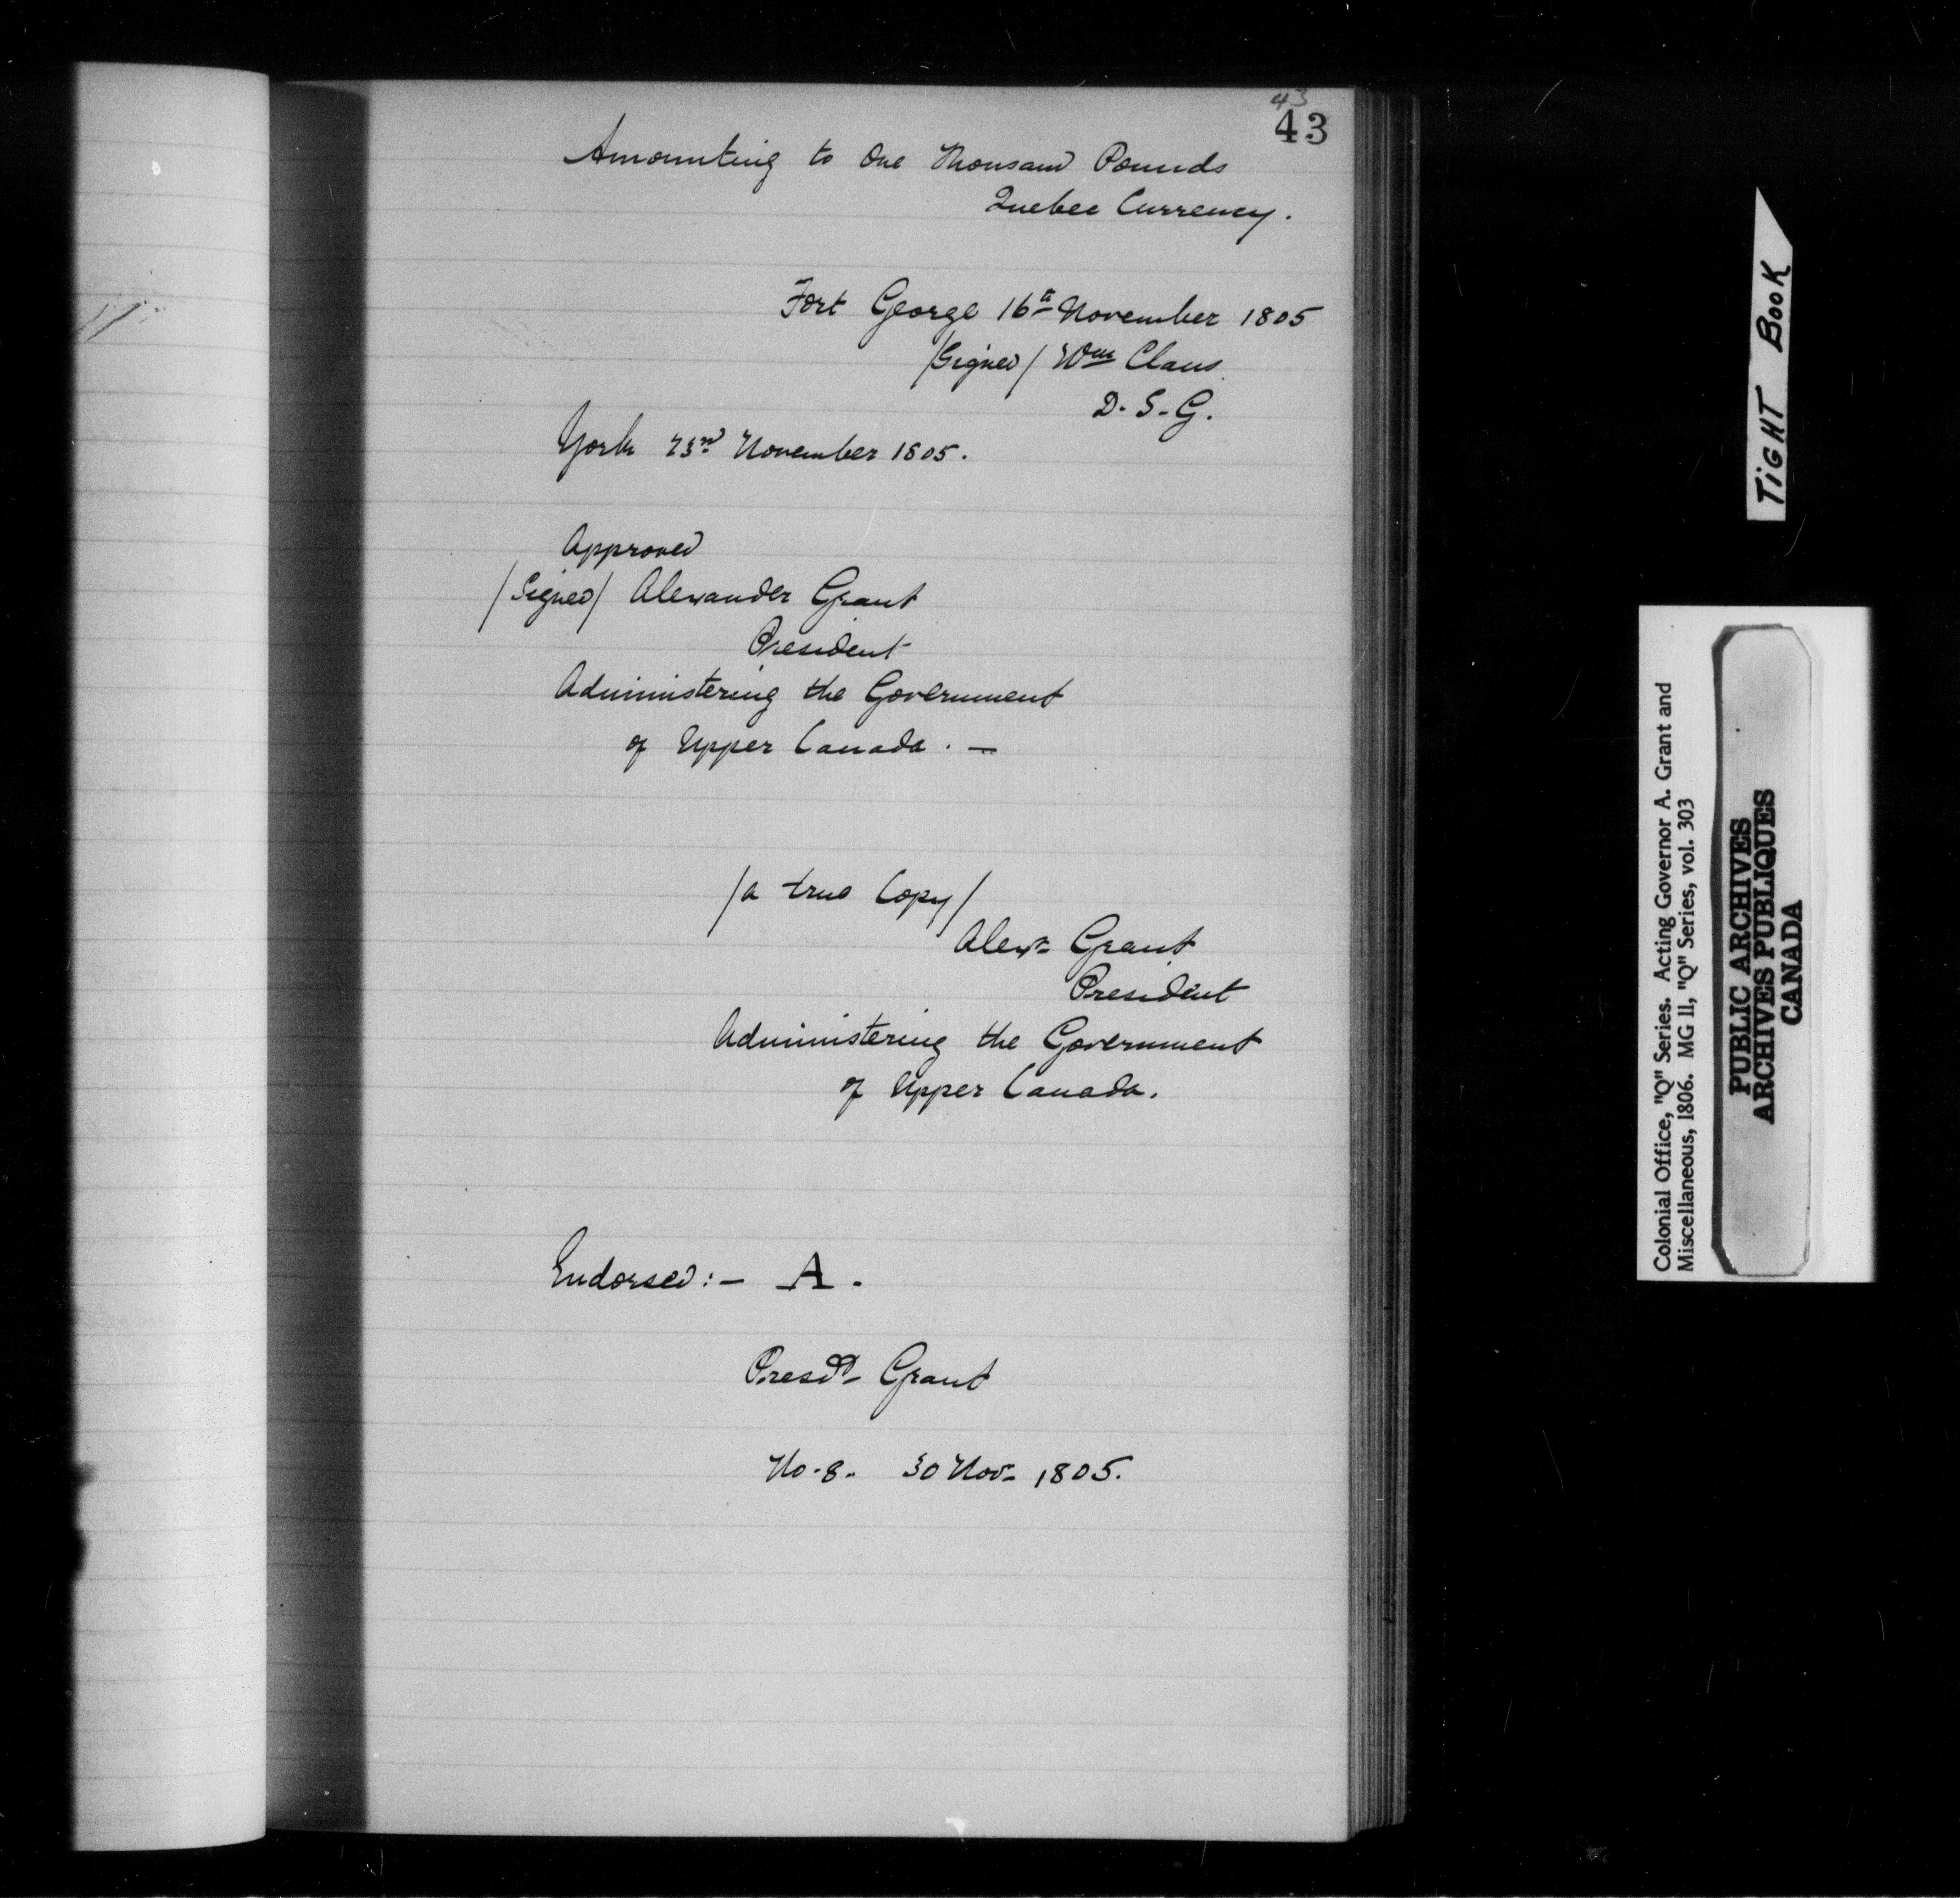 43
43
Amounting to One Thousand Pounds
Quebec Currency.
Fort George 16th November 1805
/Signed/ Wm Claus
D. S. G.
York 23rd November 1805.
Approved
/Signed/ Alexander Grant
President
Administering the Government
of Upper Canada. —
/a true Copy/
Alexr Grant
President
Administering the Government
of Upper Canada.
Endorsed:- A.
Presdt Grant
No. 8. 30 Nov. 1805.
TIGHT BOOK
Colonial Office, "Q" Series. Acting Governor A. Grant and
Miscellaneous, 1806. MG 11, "Q" Series, vol. 303
PUBLIC ARCHIVES
ARCHIVES PUBLIQUES
CANADA